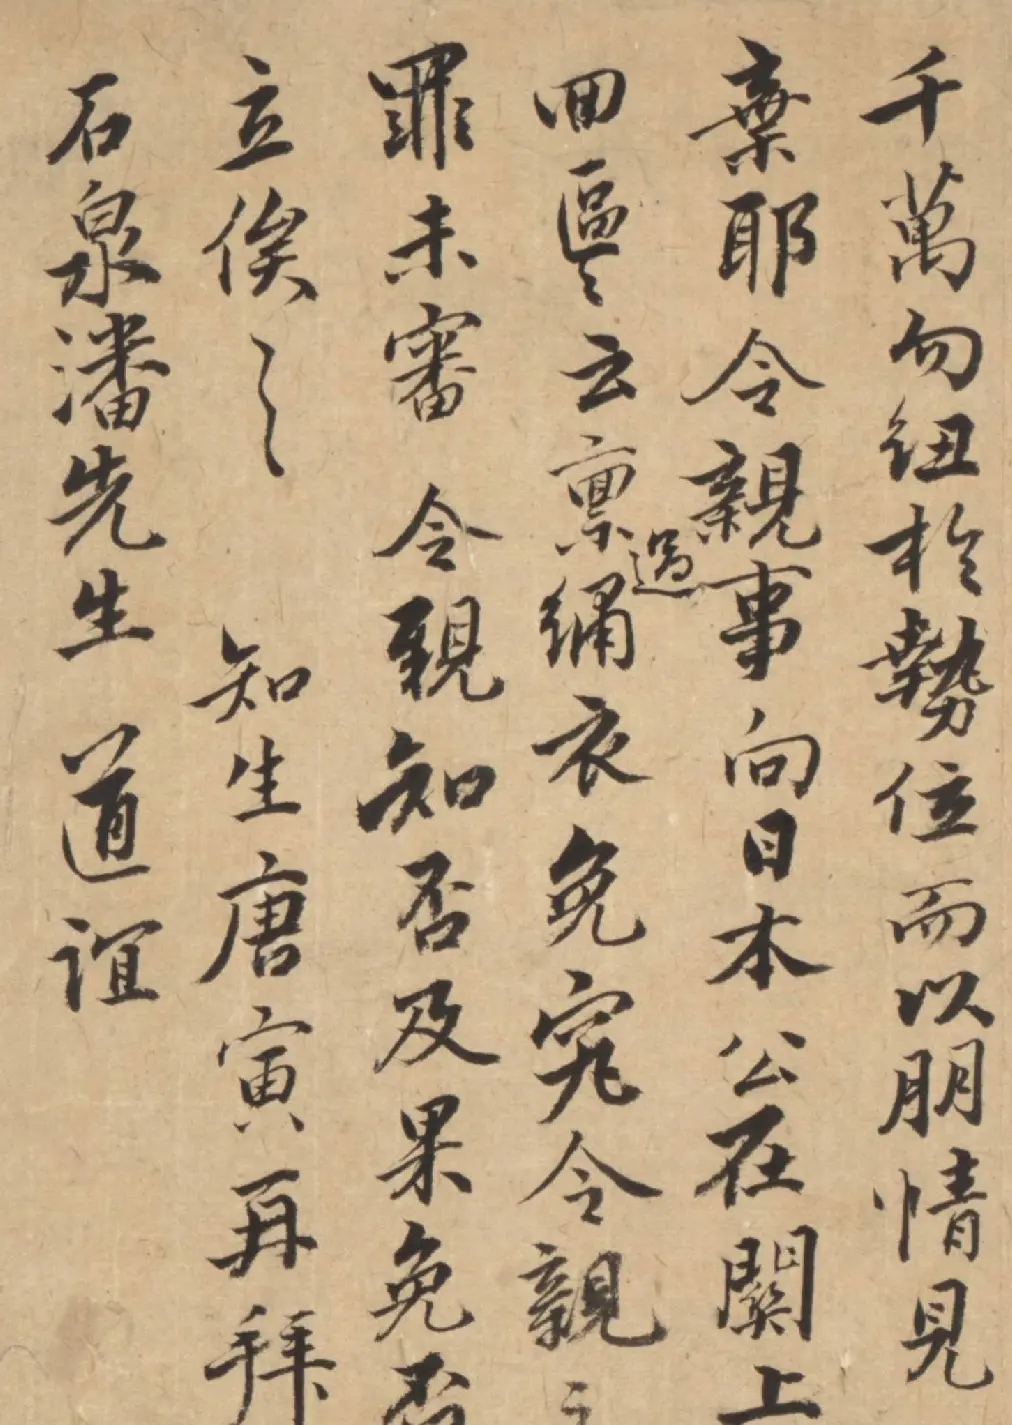 千萬勿紐於勢位而以朋情見
棄耶令親事向日本公在關上
回區〻云稟過繡衣免究令親之
罪未審令親知否及果免否
立俟〻〻知生唐寅再拜
石泉潘先生道誼